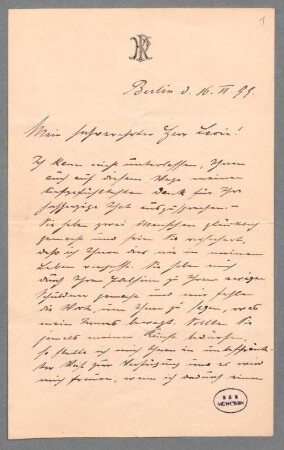 1
Berlin d. 16. VI 98.
Mein sehr verehrter Herr Levi!
Ich kann nicht unterlassen, Ihnen
auch auf diesem Wege meinen
tiefgefühltesten Dank für Ihre
That auszusprechen. –
Sie haben zwei Menschen glücklich
gemacht und seien Sie versichert,
daß ich Ihnen dies nie in meinem
Leben vergesse. Sie haben mich
durch Ihren Edelsinn zu Ihrem ewigen
Schuldner gemacht und mir fehlen
die Worte, um Ihnen zu sagen, was
mein Inneres bewegt. Sollten Sie
jemals meiner Kunst bedürfen
so stelle ich mich Ihnen in
zur Verfügung und es wird
mich freuen, wenn ich dadurch einen
BSB
MÜNCHEN